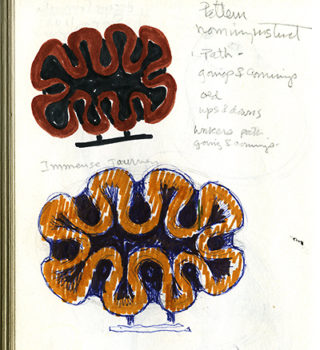 Pattern
1. Path -
goings & comings
and
ups & downs
workers path
going & comings -
Immense Journey